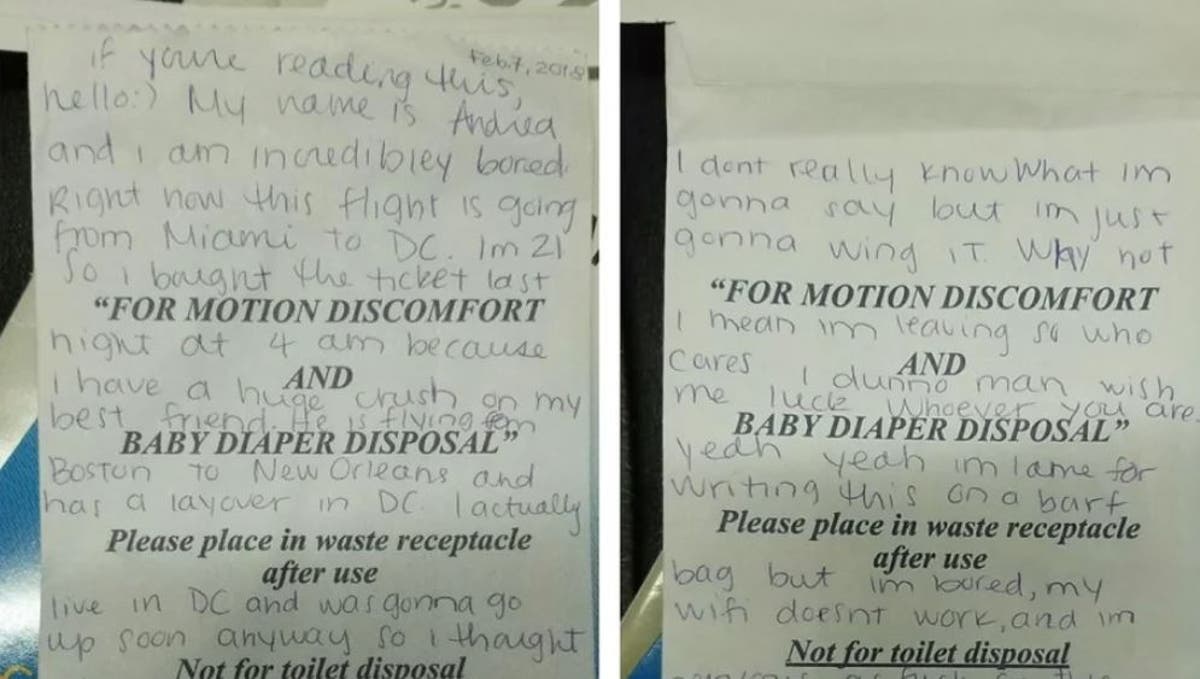 Feb.7, 2018
if youre reading this,
hello:) My name is Andrea
and i am incredibley bored.
Right now this flight is going
from Miami to DC. Im 21
So i baught the ticket last
“FOR MOTION DISCOMFORT
night at 4 am because
AND
i have a huge crush on my
best friend. He is flying from
BABY DIAPER DISPOSAL”
Boston to New Orleans and
has a layover in DC. I actually
Please place in waste receptacle
after use
live in DC and was gonna go
up soon anyway so i thaught
Not for toilet disposal
I dont really know What im
gonna say but im just
gonna wing iT. Why not
“FOR MOTION DISCOMFORT
I mean im leaving so who
cares
AND
I dunno man wish
me luck Whoever you are
BABY DIAPER DISPOSAL”
yeah yeah im lame for
writing this on a barf
Please place in waste receptacle
after use
bag but im bored, my
wifi doesnt work, and im
Not for toilet disposal